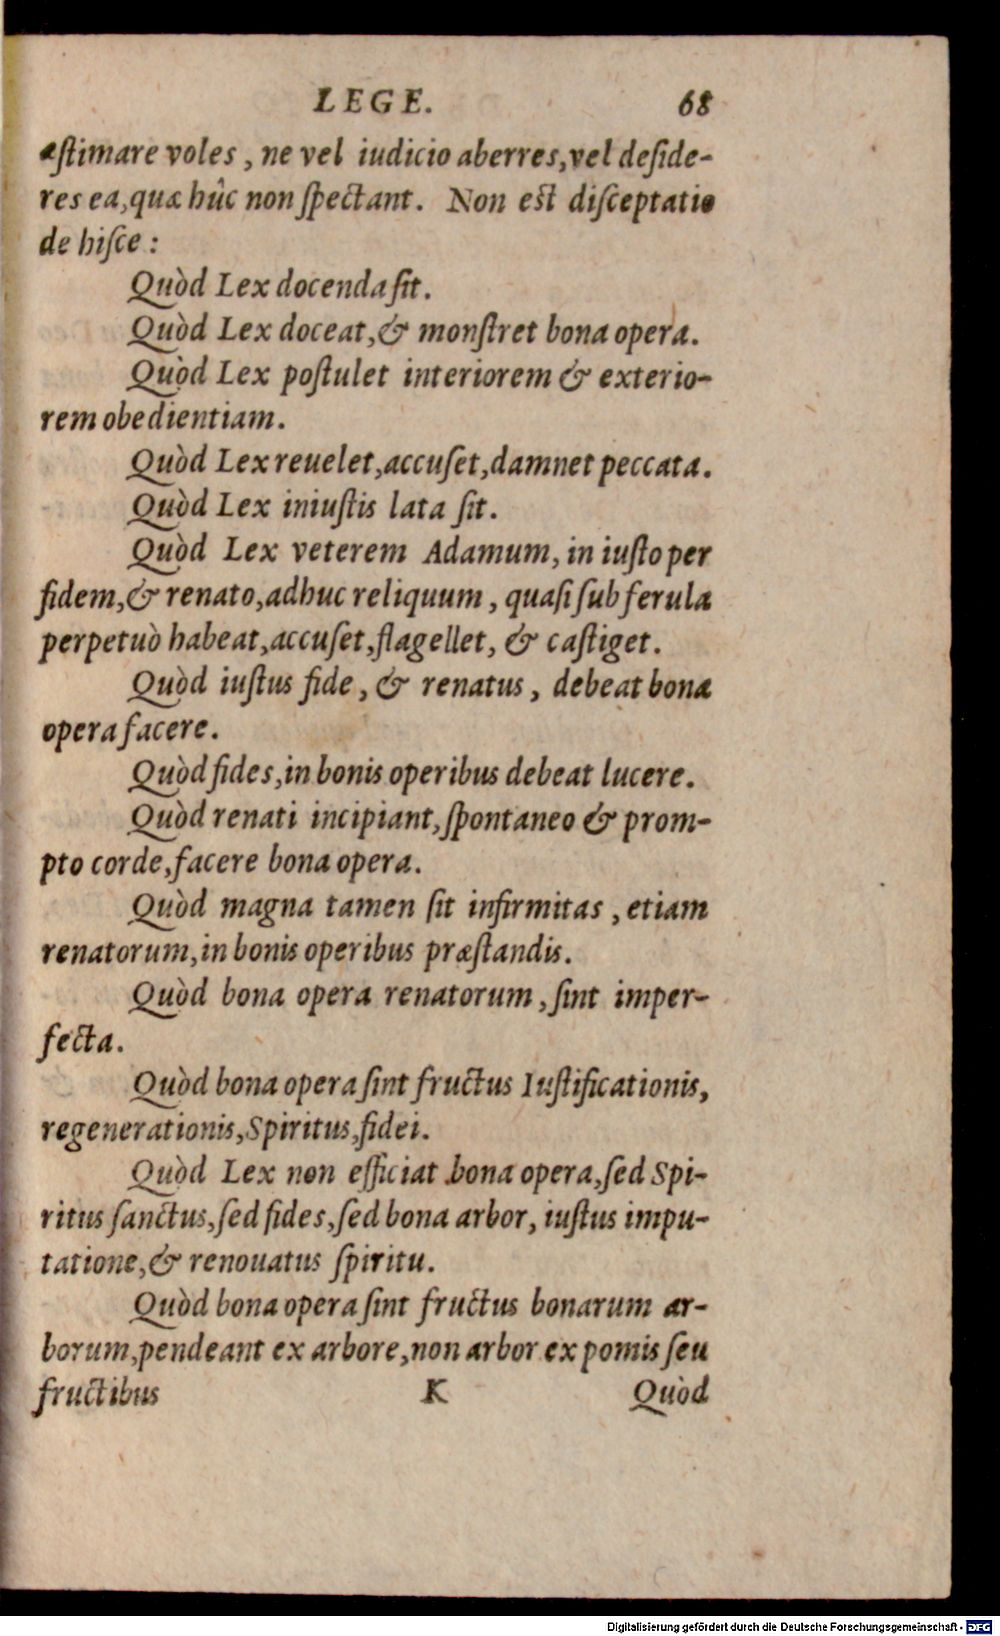 LEGE. 68
æſtimare voles, ne vel iudicio aberres, vel deſide-
res ea, quæ hûc non ſpectant. Non est diſceptatio
de hiſce:
Quòd Lex docenda ſit.
Quòd Lex doceat, & monſtret bona opera.
Quòd Lex poſtulet interiorem & exterio-
rem obedientiam.
Quòd Lex reuelet, accuſet, damnet peccata.
Quòd Lex iniuſtis lata ſit.
Quòd Lex veterem Adamum, in iuſto per
fidem, & renato, adhuc reliquum, quaſi ſub ferula
perpetuò habeat, accuſet, flagellet, & caſtiget.
Quòd iuſtus fide, & renatus, debeat bona
opera facere.
Quòd fides, in bonis operibus debeat lucere.
Quòd renati incipiant, ſpontaneo & prom-
pto corde, facere bona opera.
Quòd magna tamen ſit infirmitas, etiam
renatorum, in bonis operibus præſtandis.
Quòd bona opera renatorum, ſint imper-
fecta.
Quòd bona opera ſint fructus Iuſtificationis,
regenerationis, Spiritus, fidei.
Quòd Lex non efficiat bona opera, ſed Spi-
ritus ſanctus, ſed fides, ſed bona arbor, iuſtus impu-
tatione, & renouatus ſpiritu.
Quòd bona opera ſint fructus bonarum ar-
borum, pendeant ex arbore, non arbor ex pomis ſeu
fructibus K Quòd
Digitalisierung gefördert durch die Deutsche Forschungsgemeinschaft - DFG